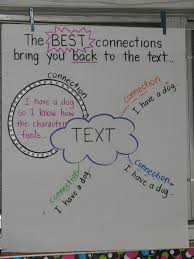 The BEST connections
bring you back to the text...
connection
I have a dog
so I know how
the character
feels...
connection
I have a dog...
TEXT
connection
I have a dog...
connection
I have a dog...